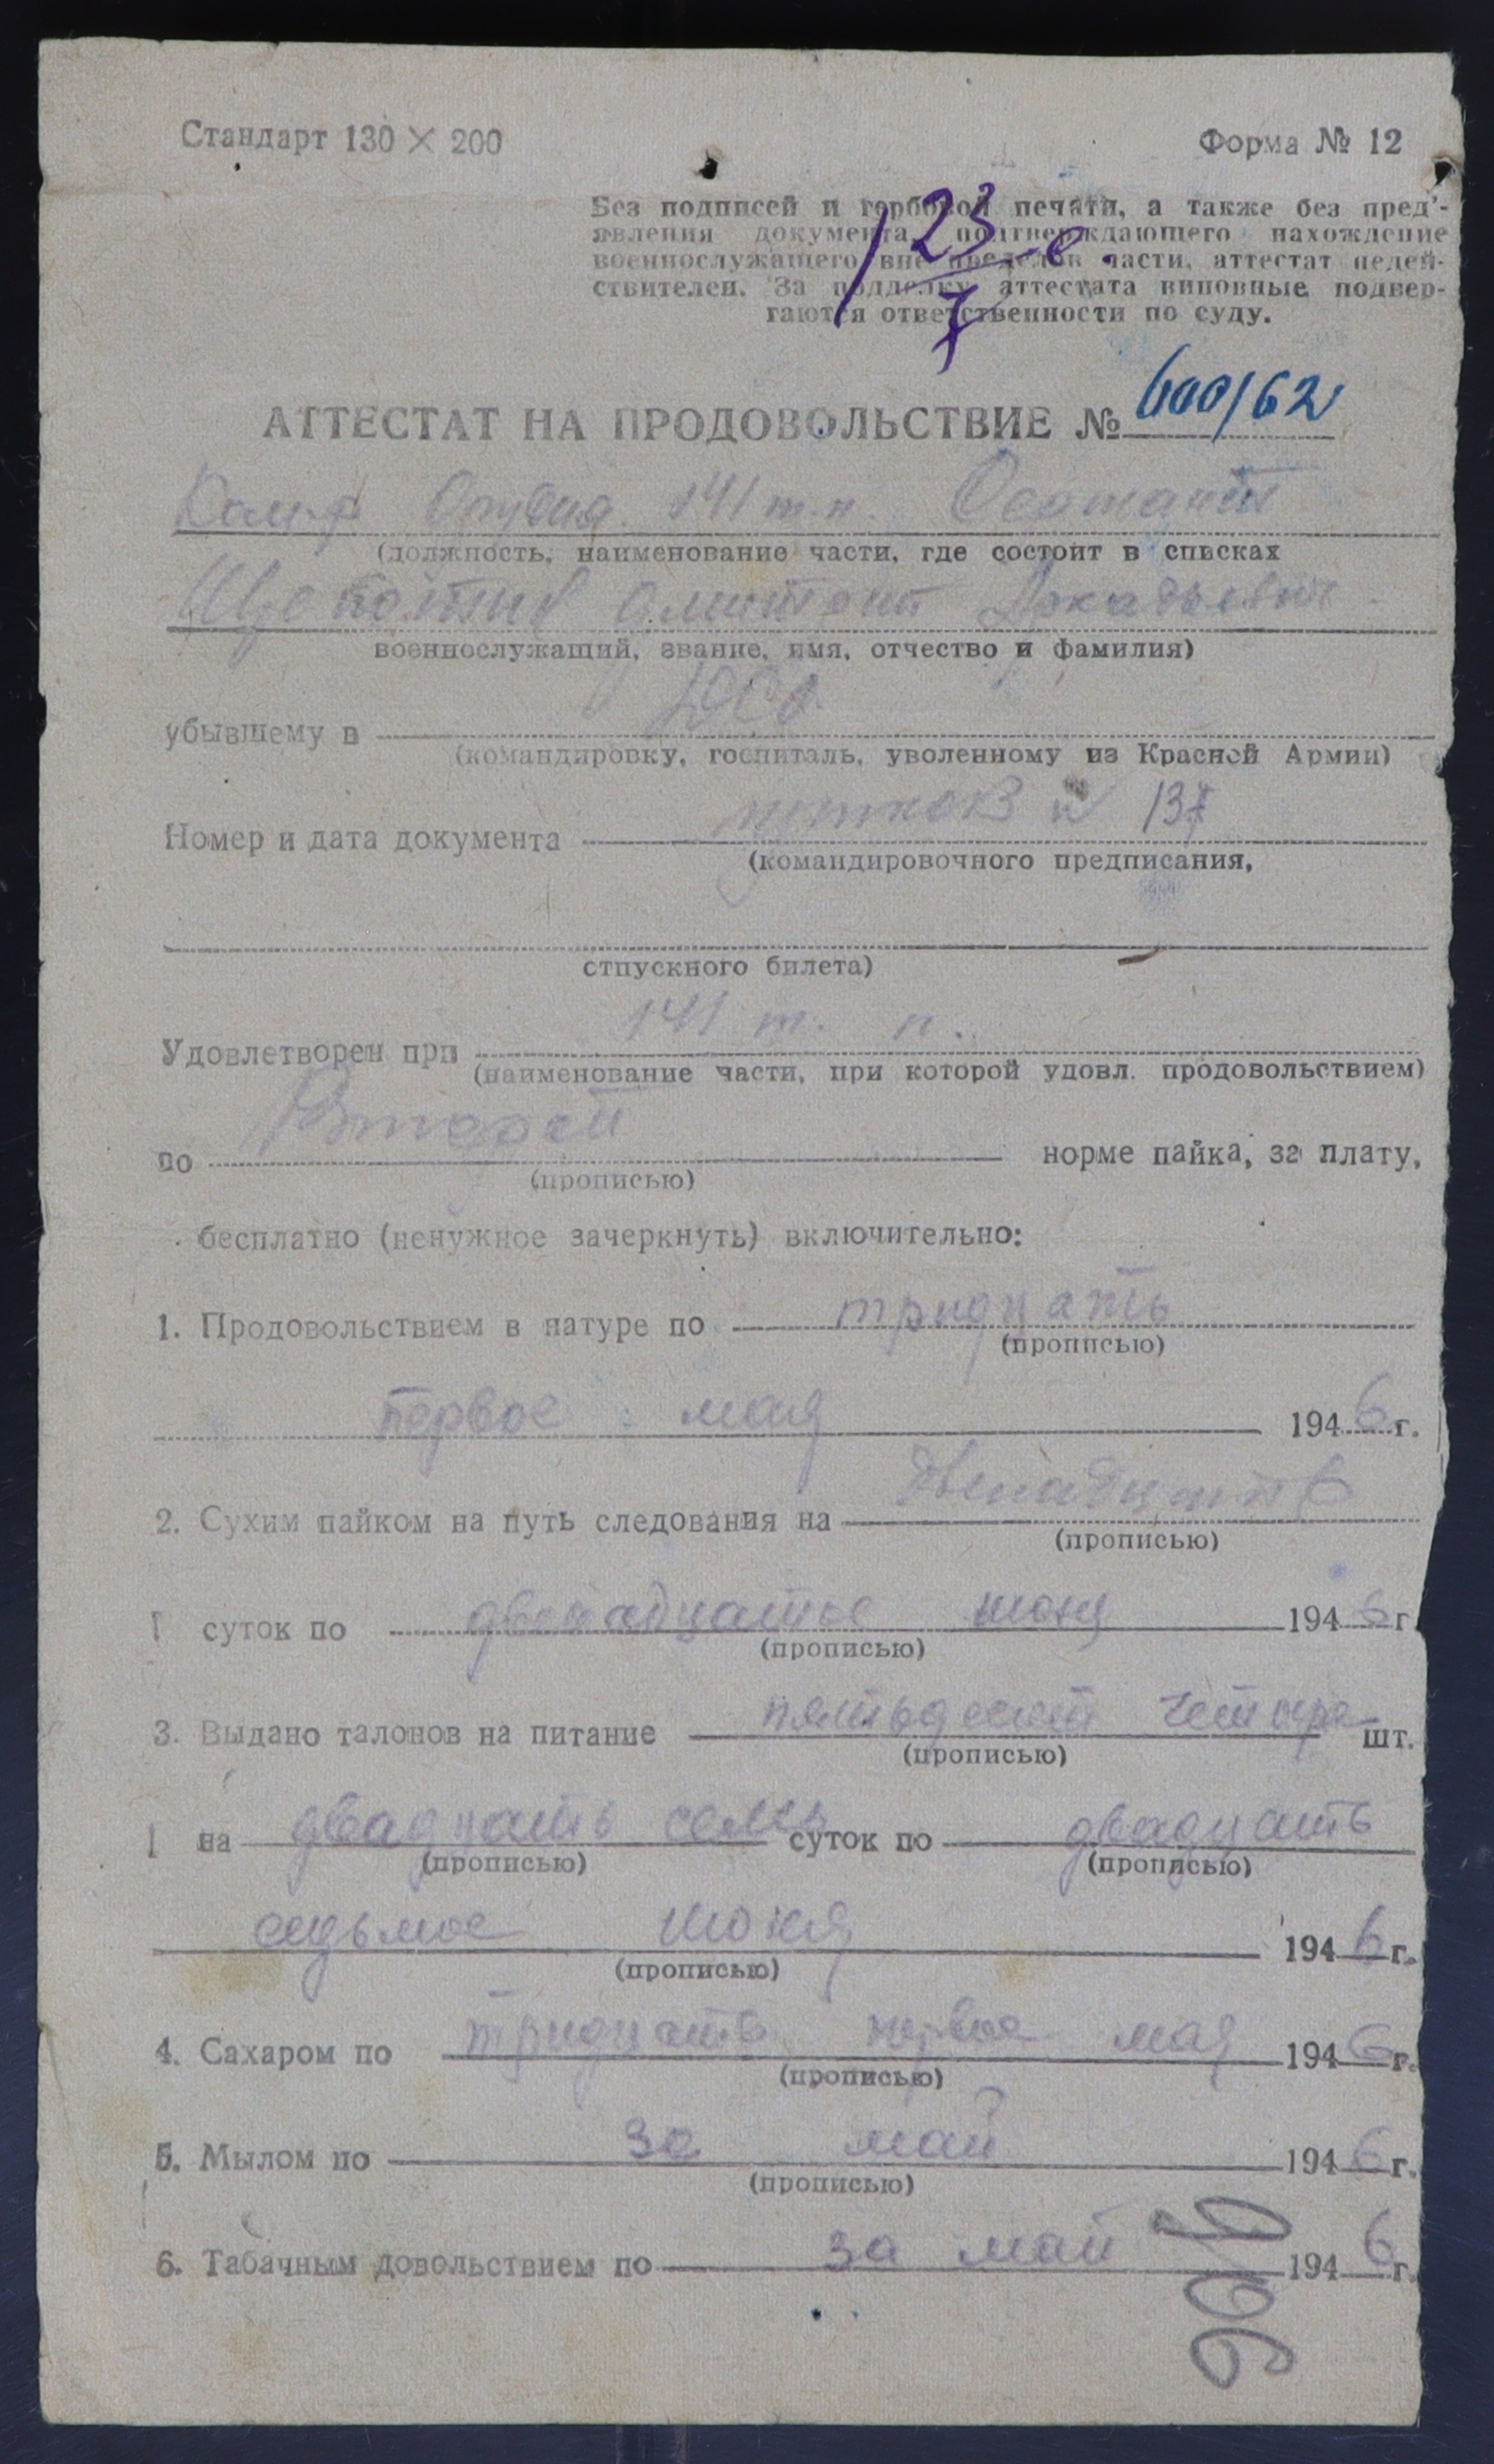 Стандарт 130 × 200
Форма № 12
Без подписей и гербовой печати, а также без пред'-
явления документа, подтверждающего нахождение
военнослужащего вне пределов части, аттестат недей-
ствителен. За подделку аттестата виновные подвер-
гаются ответственности по суду.
123-е
7
АТТЕСТАТ НА ПРОДОВОЛЬСТВИЕ № 600/62
Ком-р Орудия 141 т.п.
(должность, наименование части, где состоит в списках
военнослужащий, звание, имя, отчество и фамилия)
убывшему в
(командировку, госпиталь, уволенному из Красной Армии)
Номер и дата документа № 137
(командировочного предписания,
отпускного билета)
Удовлетворен при 141 т. п.
(наименование части, при которой удовл. продовольствием)
по Второй норме пайка, за плату,
(прописью)
бесплатно (ненужное зачеркнуть) включительно:
1. Продовольствием в натуре по тридцать
(прописью)
первое мая 1946 г.
2. Сухим пайком на путь следования на двенадцать
(прописью)
суток по двенадцатое июня 1946 г
(прописью)
3. Выдано талонов на питание пятьдесят четыре шт.
(прописью)
на двадцать семь суток по двадцать
(прописью) (прописью)
седьмое июня 1946 г.
(прописью)
4. Сахаром по тридцать первое мая 1946 г.
(прописью)
5. Мылом по за май 1946 г.
(прописью)
6. Табачным довольствием по за май 1946 г.